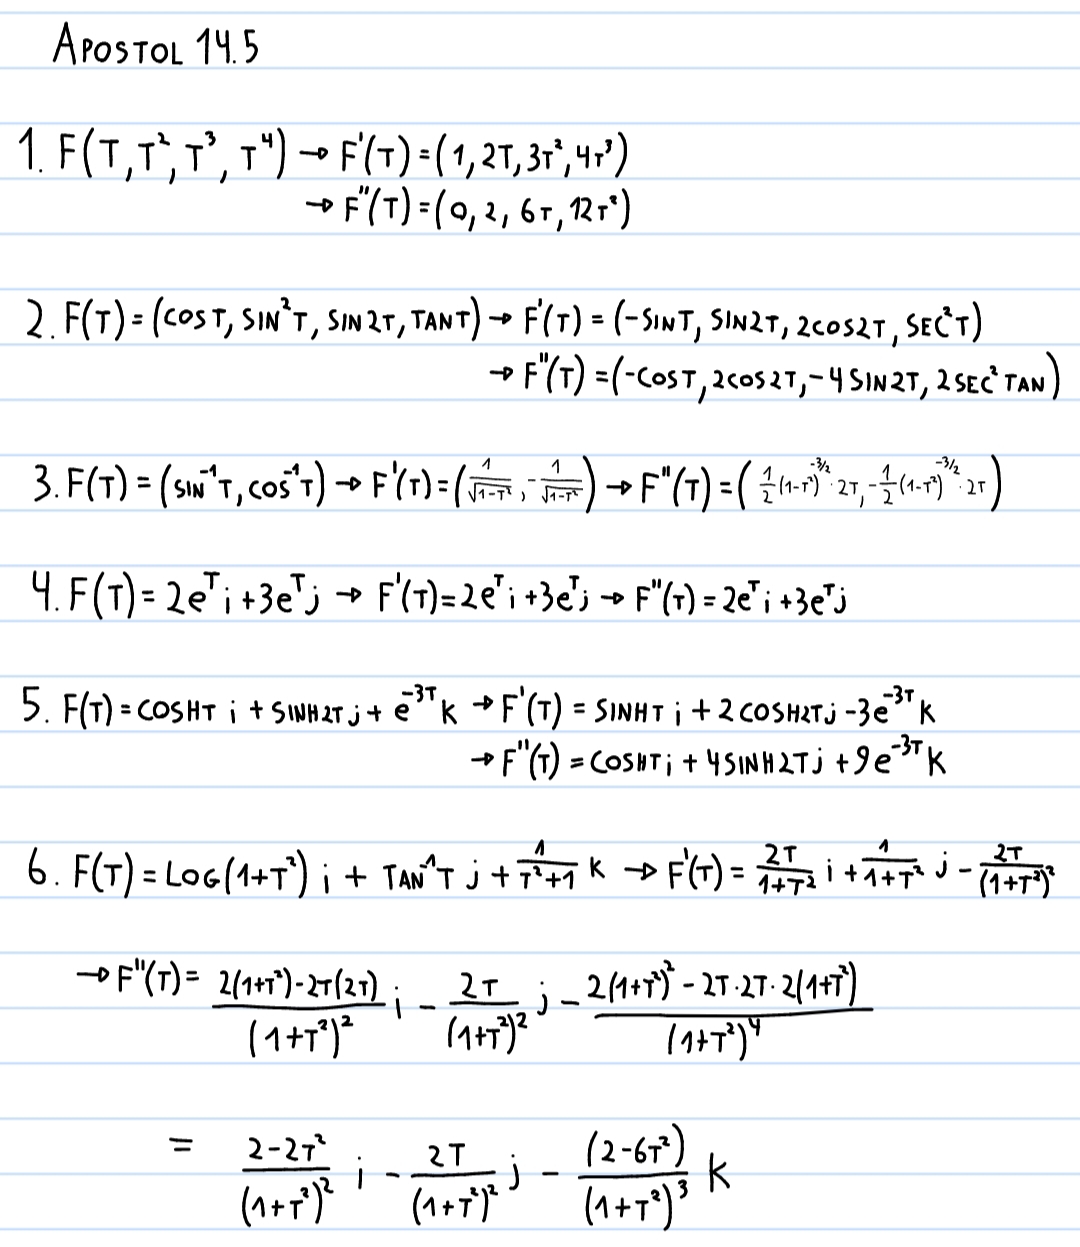 APOSTOL 14.5
1. F(T, T², T³, T⁴) → F'(T) = (1, 2T, 3T², 4T³)
→ F"(T) = (0, 2, 6T, 12T²)
2. F(T) = (COS T, SIN²T, SIN 2T, TAN T) → F'(T) = (-SIN T, SIN 2T, 2COS2T, SEC²T)
→ F"(T) = (-COS T, 2COS2T, -4 SIN2T, 2 SEC² TAN)
3. F(T) = (SIN⁻¹T, COS⁻¹T) → F'(T) = (1/√(1-T²), -1/√(1-T²)) → F"(T) = (1/2(1-T²)^(-3/2) · 2T, -1/2(1-T²)^(-3/2) · 2T)
4. F(T) = 2e^T i + 3e^T j → F'(T) = 2e^T i + 3e^T j → F"(T) = 2e^T i + 3e^T j
5. F(T) = COSHT i + SINH2T j + e^(-3T) K → F'(T) = SINHT i + 2 COSH2T j - 3e^(-3T) K
→ F"(T) = COSHT i + 4 SINH2T j + 9e^(-3T) K
6. F(T) = LOG(1+T²) i + TAN⁻¹T j + 1/(T²+1) K → F'(T) = 2T/(1+T²) i + 1/(1+T²) j - 2T/(1+T²)²
→ F"(T) = (2(1+T²)-2T(2T))/(1+T²)² i - 2T/(1+T²)² j - (2(1+T²)² - 2T·2T·2(1+T²))/(1+T²)⁴
= (2-2T²)/(1+T²)² i - 2T/(1+T²)² j - (2-6T²)/(1+T²)³ K